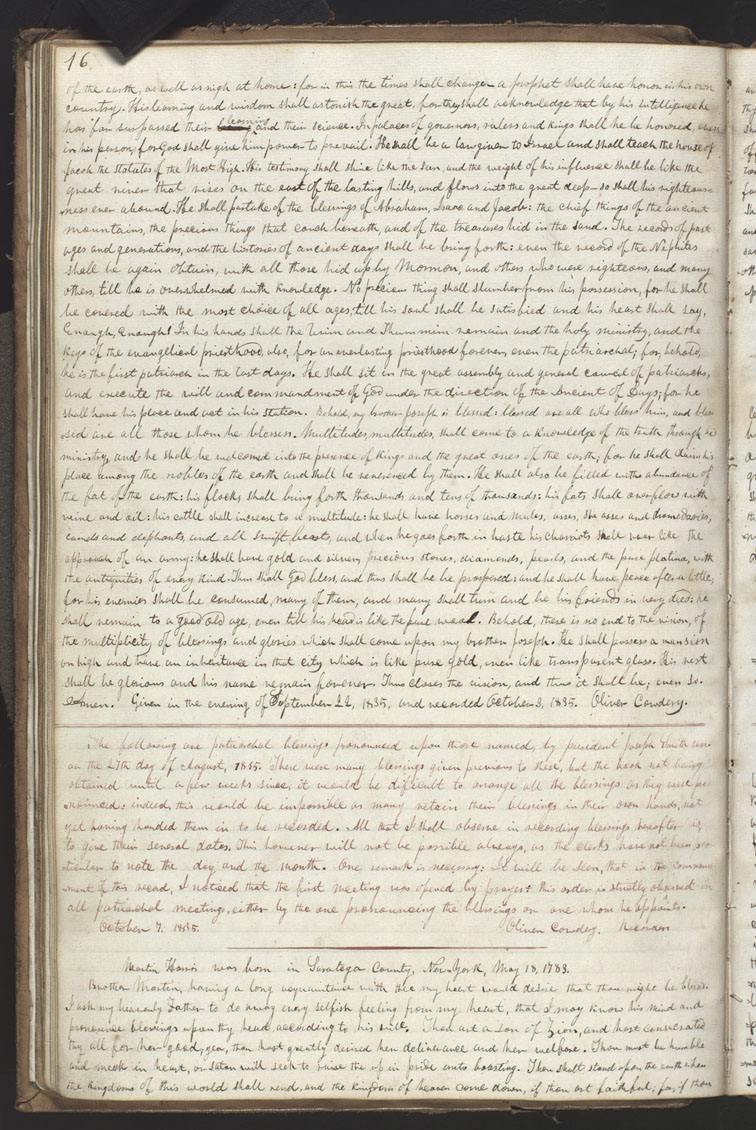 16
of the earth, as well as nigh at home: for in this the times shall change a prophet shall have honor in his own
country. His learning and wisdom shall astonish the great, for they shall acknowledge that by his intelligence he
has far surpassed their learning and their science. In palaces of governors, rulers and kings shall he be honored, even
in his person, for God shall give him power to prevail. He shall be a lawgiver to Israel and shall teach the house of
Jacob the statutes of the Most High. His testimony shall shine like the sun, and the weight of his influence shall be like the
great river that rises on the east of the lasting hills, and flows into the great deep—so shall his righteous-
ness ever abound. He shall partake of the blessings of Abraham, Isaac and Jacob: the chief things of the ancient
mountains, the precious things that couch beneath, and of the treasures hid in the sand. The records of past
ages and generations, and the histories of ancient days shall he bring forth: even the record of the Nephites
shall he again obtain, with all those hid up by Mormon, and others who were righteous, and many
others, till he is overwhelmed with knowledge. No precious thing shall slumber from his possession, for he shall
be covered with the most choice of all ages, till his soul shall be satisfied and his heart shall say,
Enough, Enough! In his hands shall the Urim and Thummim remain and the holy ministry, and the
keys of the evangelical priesthood, also, for an everlasting priesthood forever, even the patriarchal; for, behold,
he is the first patriarch in the last days. He shall sit in the great assembly and general council of patriarchs,
and execute the will and commandment of God under the direction of the Ancient of Days; for he
shall have his place and act in his station. Behold, my brother Joseph is blessed: blessed are all who bless him, and bles-
sed are all those whom he blesses. Multitudes, multitudes, shall come to a knowledge of the truth through his
ministry, and he shall be welcomed into the presence of kings and the great ones of the earth; for he shall claim his
place among the nobles of the earth and shall be reverenced by them. He shall also be filled with abundance of
the fat of the earth: his flocks shall bring forth thousands and tens of thousands: his fats shall overflow with
wine and oil: his cattle shall increase to a multitude: he shall have horses and mules, asses, she asses and dromedaries,
camels and elephants, and all swift beasts, and when he goes forth in haste his chariots shall roar like the
approach of an army: he shall have gold and silver, precious stones, diamonds, pearls, and the pure platina, with
the antiquities of every kind. Thus shall God bless, and thus shall he be prospered: and he shall have peace after a little,
for his enemies shall be consumed, many of them, and many shall turn and be his friends in very deed: he
shall remain to a good old age, even till his head is like the pure wool. Behold, there is no end to the vision, of
the multiplicity of blessings and glories which shall come upon my brother Joseph. He shall possess a mansion
on high and have an inheritance in that city which is like pure gold, even like transparent glass. His rest
shall be glorious and his name remain forever. Thus closes the vision, and thus it shall be; even so.
Amen. Given in the evening of September 22, 1835, and recorded October 3, 1835. Oliver Cowdery.
The following are patriarchal blessings pronounced upon those named, by president Joseph Smith sen.
on the 27th day of August, 1835. There were many blessings given previous to these, but the book not being
obtained until a few weeks since, it would be difficult to arrange all the blessings as they were pro-
nounced: indeed, this would be impossible as many retain their blessings in their own hands, not
yet having handed them in to be recorded. All that I shall observe in recording blessings hereafter is
to give their several dates. This however will not be possible always, as the clerks have not been par-
ticular to note the day and the month. One remark is necessary: It will be seen, that in the commence-
ment of this record, I noticed that the first meeting was opened by prayer: this order is strictly observed in
all patriarchal meetings, either by the one pronouncing the blessings or one whom he appoints.
October 7, 1835. Oliver Cowdery, Recorder
Martin Harris was born in Saratoga County, New-York, May 18, 1783.
Brother Martin, having a long acquaintance with thee my heart would desire that thou might be blessed.
I ask my heavenly Father to do away every selfish feeling from my heart, that I may know his mind and
pronounce blessings upon thy head according to his will. Thou art a son of Zion, and hast consecrated
thy all for her good, yea, thou hast greatly desired her deliverance and her welfare. Thou must be humble
and meek in heart, or Satan will seek to raise thee up in pride unto boasting. Thou shalt stand upon the earth when
the kingdoms of this world shall rend, and the kingdom of heaven come down, if thou art faithful; for, if thou